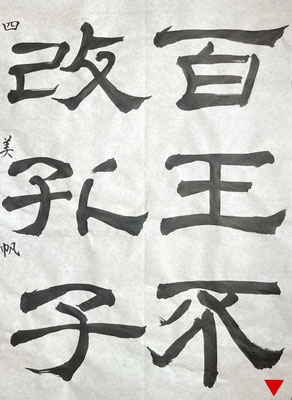 百王不
改孔子
四 美帆